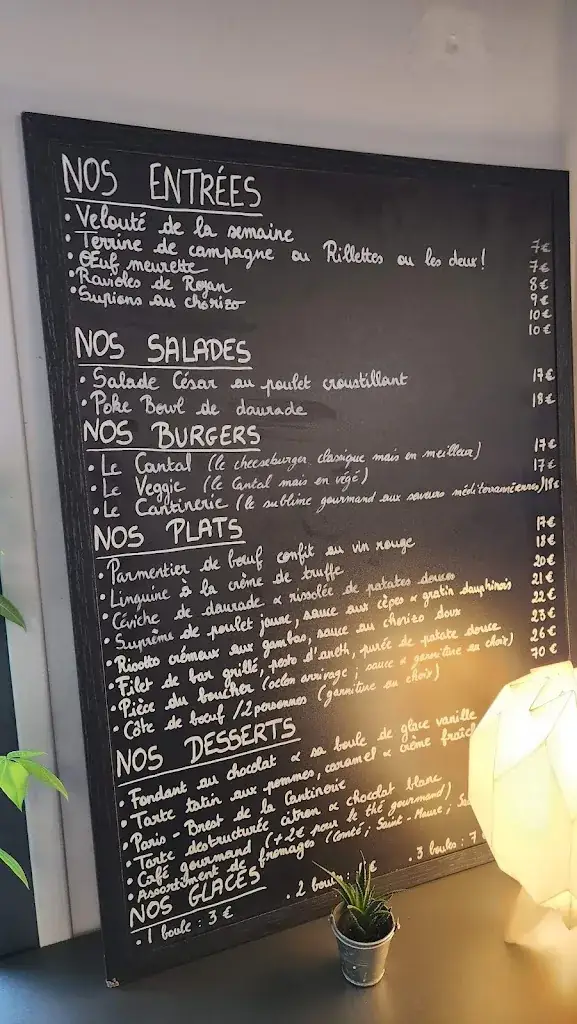 NOS ENTRÉES
• Velouté de la semaine 7€
• Terrine de campagne ou Rillettes ou les deux ! 7€
• Œuf meurette 8€
• Ravioles de Royan 9€
• Supions au chorizo 10€
10€
NOS SALADES
• Salade César au poulet croustillant 17€
• Poke Bowl de daurade 18€
NOS BURGERS
• Le Cantal (le cheeseburger classique mais en meilleur) 17€
• Le Veggie (le Cantal mais en végé) 17€
• Le Cantinerie (le sublime gourmand aux saveurs méditerranéennes) 18€
NOS PLATS
• Parmentier de bœuf confit au vin rouge 17€
• Linguine à la crème de truffe 18€
• Céviche de daurade & rissolée de patates douces 20€
• Suprême de poulet jaune, sauce aux cèpes & gratin dauphinois 21€
• Risotto crémeux aux gambas, sauce au chorizo doux 22€
• Filet de bar grillé, pesto d'aneth, purée de patate douce 23€
• Pièce du boucher (selon arrivage ; sauce & garniture au choix) 26€
• Côte de bœuf /2 personnes (garniture au choix) 70€
NOS DESSERTS
• Fondant au chocolat & sa boule de glace vanille
• Tarte tatin aux pommes, caramel & crème fraîche
• Paris - Brest de la Cantinerie
• Tarte destructurée citron & chocolat blanc
• Café gourmand (+2€ pour le thé gourmand)
• Assortiment de fromages (Comté ; Saint-Maure ;
NOS GLACES
• 1 boule : 3 € • 2 boules : € • 3 boules : 7